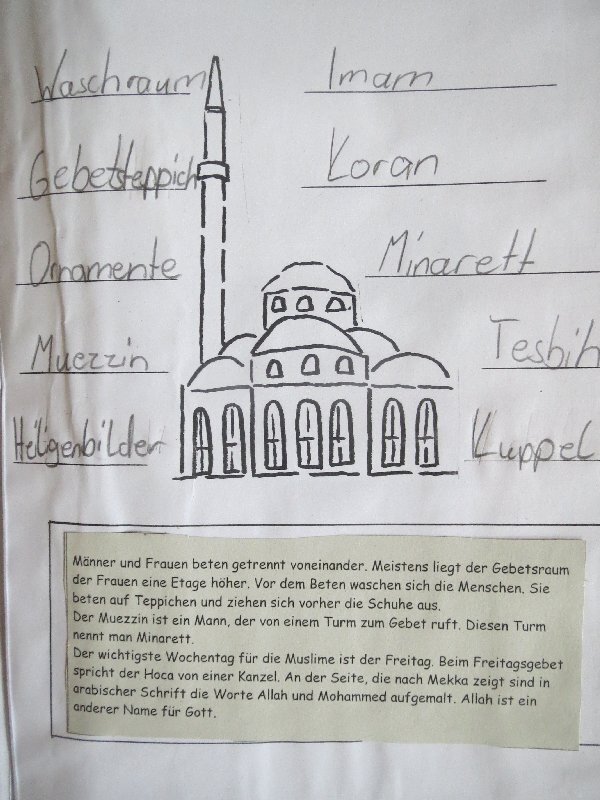 Waschraum
Imam
Gebetsteppich
Koran
Ornamente
Minarett
Muezzin
Tesbih
Heiligenbilder
Kuppel
Männer und Frauen beten getrennt voneinander. Meistens liegt der Gebetsraum
der Frauen eine Etage höher. Vor dem Beten waschen sich die Menschen. Sie
beten auf Teppichen und ziehen sich vorher die Schuhe aus.
Der Muezzin ist ein Mann, der von einem Turm zum Gebet ruft. Diesen Turm
nennt man Minarett.
Der wichtigste Wochentag für die Muslime ist der Freitag. Beim Freitagsgebet
spricht der Hoca von einer Kanzel. An der Seite, die nach Mekka zeigt sind in
arabischer Schrift die Worte Allah und Mohammed aufgemalt. Allah ist ein
anderer Name für Gott.